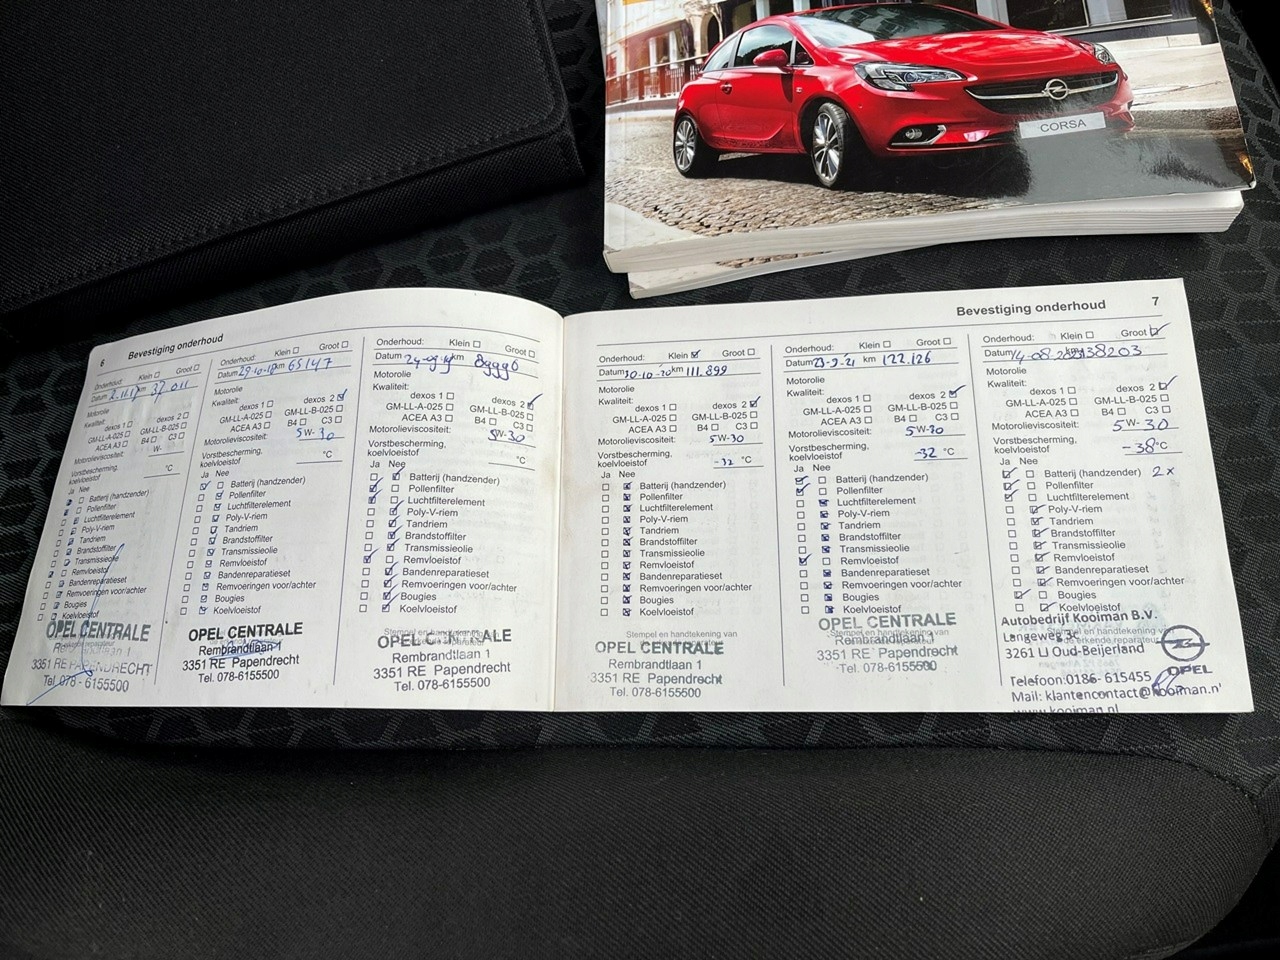 CORSA
6 Bevestiging onderhoud
Onderhoud: Klein Groot
Datum 2.11.17 km 37.011
Motorolie
Kwaliteit:
dexos 1 dexos 2
GM-LL-A-025 GM-LL-B-025
ACEA A3 B4 C3
Motorolieviscositeit: W-
Vorstbescherming, koelvloeistof °C
Ja Nee
Batterij (handzender)
Pollenfilter
Luchtfilterelement
Poly-V-riem
Tandriem
Brandstoffilter
Transmissieolie
Remvloeistof
Bandenreparatieset
Remvoeringen voor/achter
Bougies
Koelvloeistof
OPEL CENTRALE
Rembrandtlaan 1
3351 RE PAPENDRECHT
Tel. 078 - 6155500
Onderhoud: Klein Groot
Datum 29-10-18 km 65147
Motorolie
Kwaliteit:
dexos 1 dexos 2
GM-LL-A-025 GM-LL-B-025
ACEA A3 B4 C3
Motorolieviscositeit: 5W-30
Vorstbescherming,
koelvloeistof °C
Ja Nee
Batterij (handzender)
Pollenfilter
Luchtfilterelement
Poly-V-riem
Tandriem
Brandstoffilter
Transmissieolie
Remvloeistof
Bandenreparatieset
Remvoeringen voor/achter
Bougies
Koelvloeistof
OPEL CENTRALE
Rembrandtlaan 1
3351 RE Papendrecht
Tel. 078-6155500
Onderhoud: Klein Groot
Datum km
Motorolie
Kwaliteit:
dexos 1 dexos 2
GM-LL-A-025 GM-LL-B-025
ACEA A3 B4 C3
Motorolieviscositeit: 5W-30
Vorstbescherming,
koelvloeistof °C
Ja Nee
Batterij (handzender)
Pollenfilter
Luchtfilterelement
Poly-V-riem
Tandriem
Brandstoffilter
Transmissieolie
Remvloeistof
Bandenreparatieset
Remvoeringen voor/achter
Bougies
Koelvloeistof
Stempel en handtekening van
OPEL CENTRALE
Rembrandtlaan 1
3351 RE Papendrecht
Tel. 078-6155500
Bevestiging onderhoud 7
Onderhoud: Klein Groot
Datum 30-10-20 km 111.899
Motorolie
Kwaliteit:
dexos 1 dexos 2
GM-LL-A-025 GM-LL-B-025
ACEA A3 B4 C3
Motorolieviscositeit: 5W-30
Vorstbescherming,
koelvloeistof -32 °C
Ja Nee
Batterij (handzender)
Pollenfilter
Luchtfilterelement
Poly-V-riem
Tandriem
Brandstoffilter
Transmissieolie
Remvloeistof
Bandenreparatieset
Remvoeringen voor/achter
Bougies
Koelvloeistof
Stempel en handtekening van
OPEL CENTRALE
Rembrandtlaan 1
3351 RE Papendrecht
Tel. 078-6155500
Onderhoud: Klein Groot
Datum 23-9-21 km 122.126
Motorolie
Kwaliteit:
dexos 1 dexos 2
GM-LL-A-025 GM-LL-B-025
ACEA A3 B4 C3
Motorolieviscositeit: 5W-30
Vorstbescherming,
koelvloeistof -32 °C
Ja Nee
Batterij (handzender)
Pollenfilter
Luchtfilterelement
Poly-V-riem
Tandriem
Brandstoffilter
Transmissieolie
Remvloeistof
Bandenreparatieset
Remvoeringen voor/achter
Bougies
Koelvloeistof
Stempel en handtekening van
OPEL CENTRALE
Rembrandtlaan 1
3351 RE Papendrecht
Tel. 078-6155500
Onderhoud: Klein Groot
Datum 14-08- km 138203
Motorolie
Kwaliteit:
dexos 1 dexos 2
GM-LL-A-025 GM-LL-B-025
ACEA A3 B4 C3
Motorolieviscositeit: 5W-30
Vorstbescherming,
koelvloeistof -38°C
Ja Nee
Batterij (handzender) 2x
Pollenfilter
Luchtfilterelement
Poly-V-riem
Tandriem
Brandstoffilter
Transmissieolie
Remvloeistof
Bandenreparatieset
Remvoeringen voor/achter
Bougies
Koelvloeistof
Autobedrijf Kooiman B.V.
Langeweg 3c
3261 LJ Oud-Beijerland
OPEL
Telefoon:0186- 615455
Mail: klantencontact@kooiman.n'
www.kooiman.nl